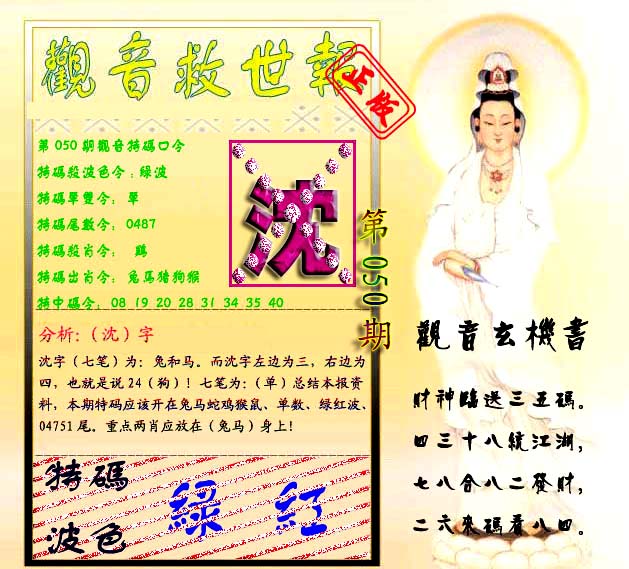 觀音救世報
正版
第 050 期觀音特碼口令
特碼殺波色令：綠波
特碼單雙令：單
特碼尾數令：0487
特碼殺肖令：鷄
特碼出肖令：兔馬猪狗猴
特中碼令：08 19 20 28 31 34 35 40
沈
第050期
分析：（沈）字
沈字（七笔）为：兔和马。而沈字左边为三，右边为
四，也就是说 24（狗）！七笔为：（单）总结本报资
料，本期特码应该开在兔马蛇鸡猴鼠、单数、绿红波、
04751 尾。重点两肖应放在（兔马）身上！
特碼
波色
綠 紅
觀音玄機書
財神臨送三五碼。
四三十八統江湖，
七八合八二發財，
二六來碼看八四。